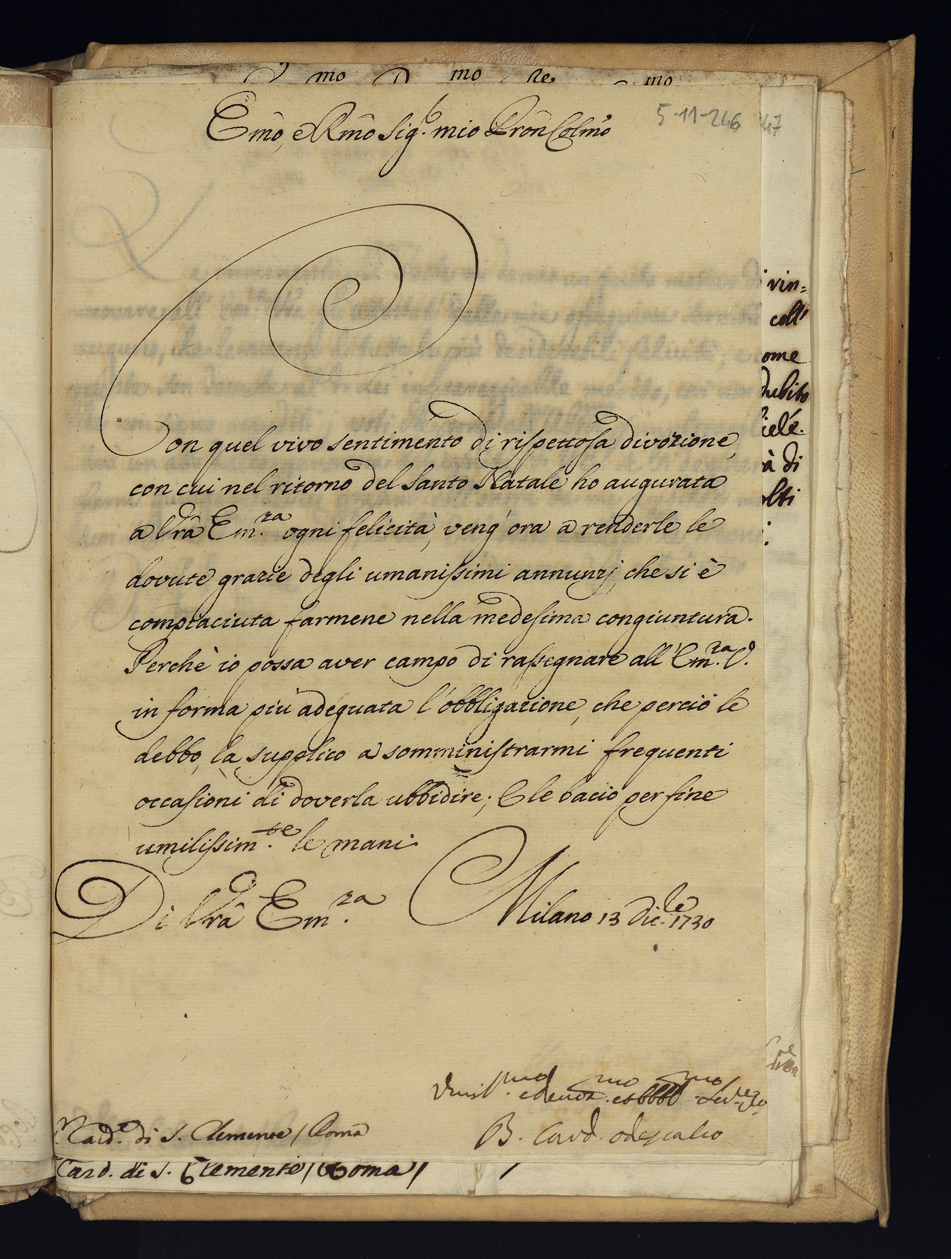 mo mo re mo
Emo, e Rmo Sig.r mio Pron Colmo
5-11-246 47
Con quel vivo sentimento di rispettosa divozione,
con cui nel ritorno del Santo Natale ho augurata
a Vrã Em.za ogni felicità, veng' ora a renderle le
dovute grazie degli umanissimi annunzj, che si è
compiaciuta farmene nella medesima congiuntura.
Perchè io possa aver campo di rassegnare all' Em.za V.
in forma più adeguata l'obbligazione, che perciò le
debbo, la supplico a somministrarmi frequenti
occasioni di doverla ubbidire; E le bacio per fine
umilissim.te le mani.
Di Vrã Em.za Milano 13 Dic.le 1730
B. Card. Odescalco
Card. di S. Clemente / Roma
Card. di S. Clemente / Roma /
vin=
coll'
ome
dubito
iele.
à di
olti